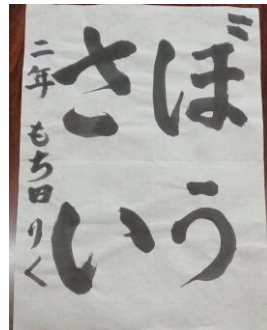 ぼう
さい
二年 もち田 りく